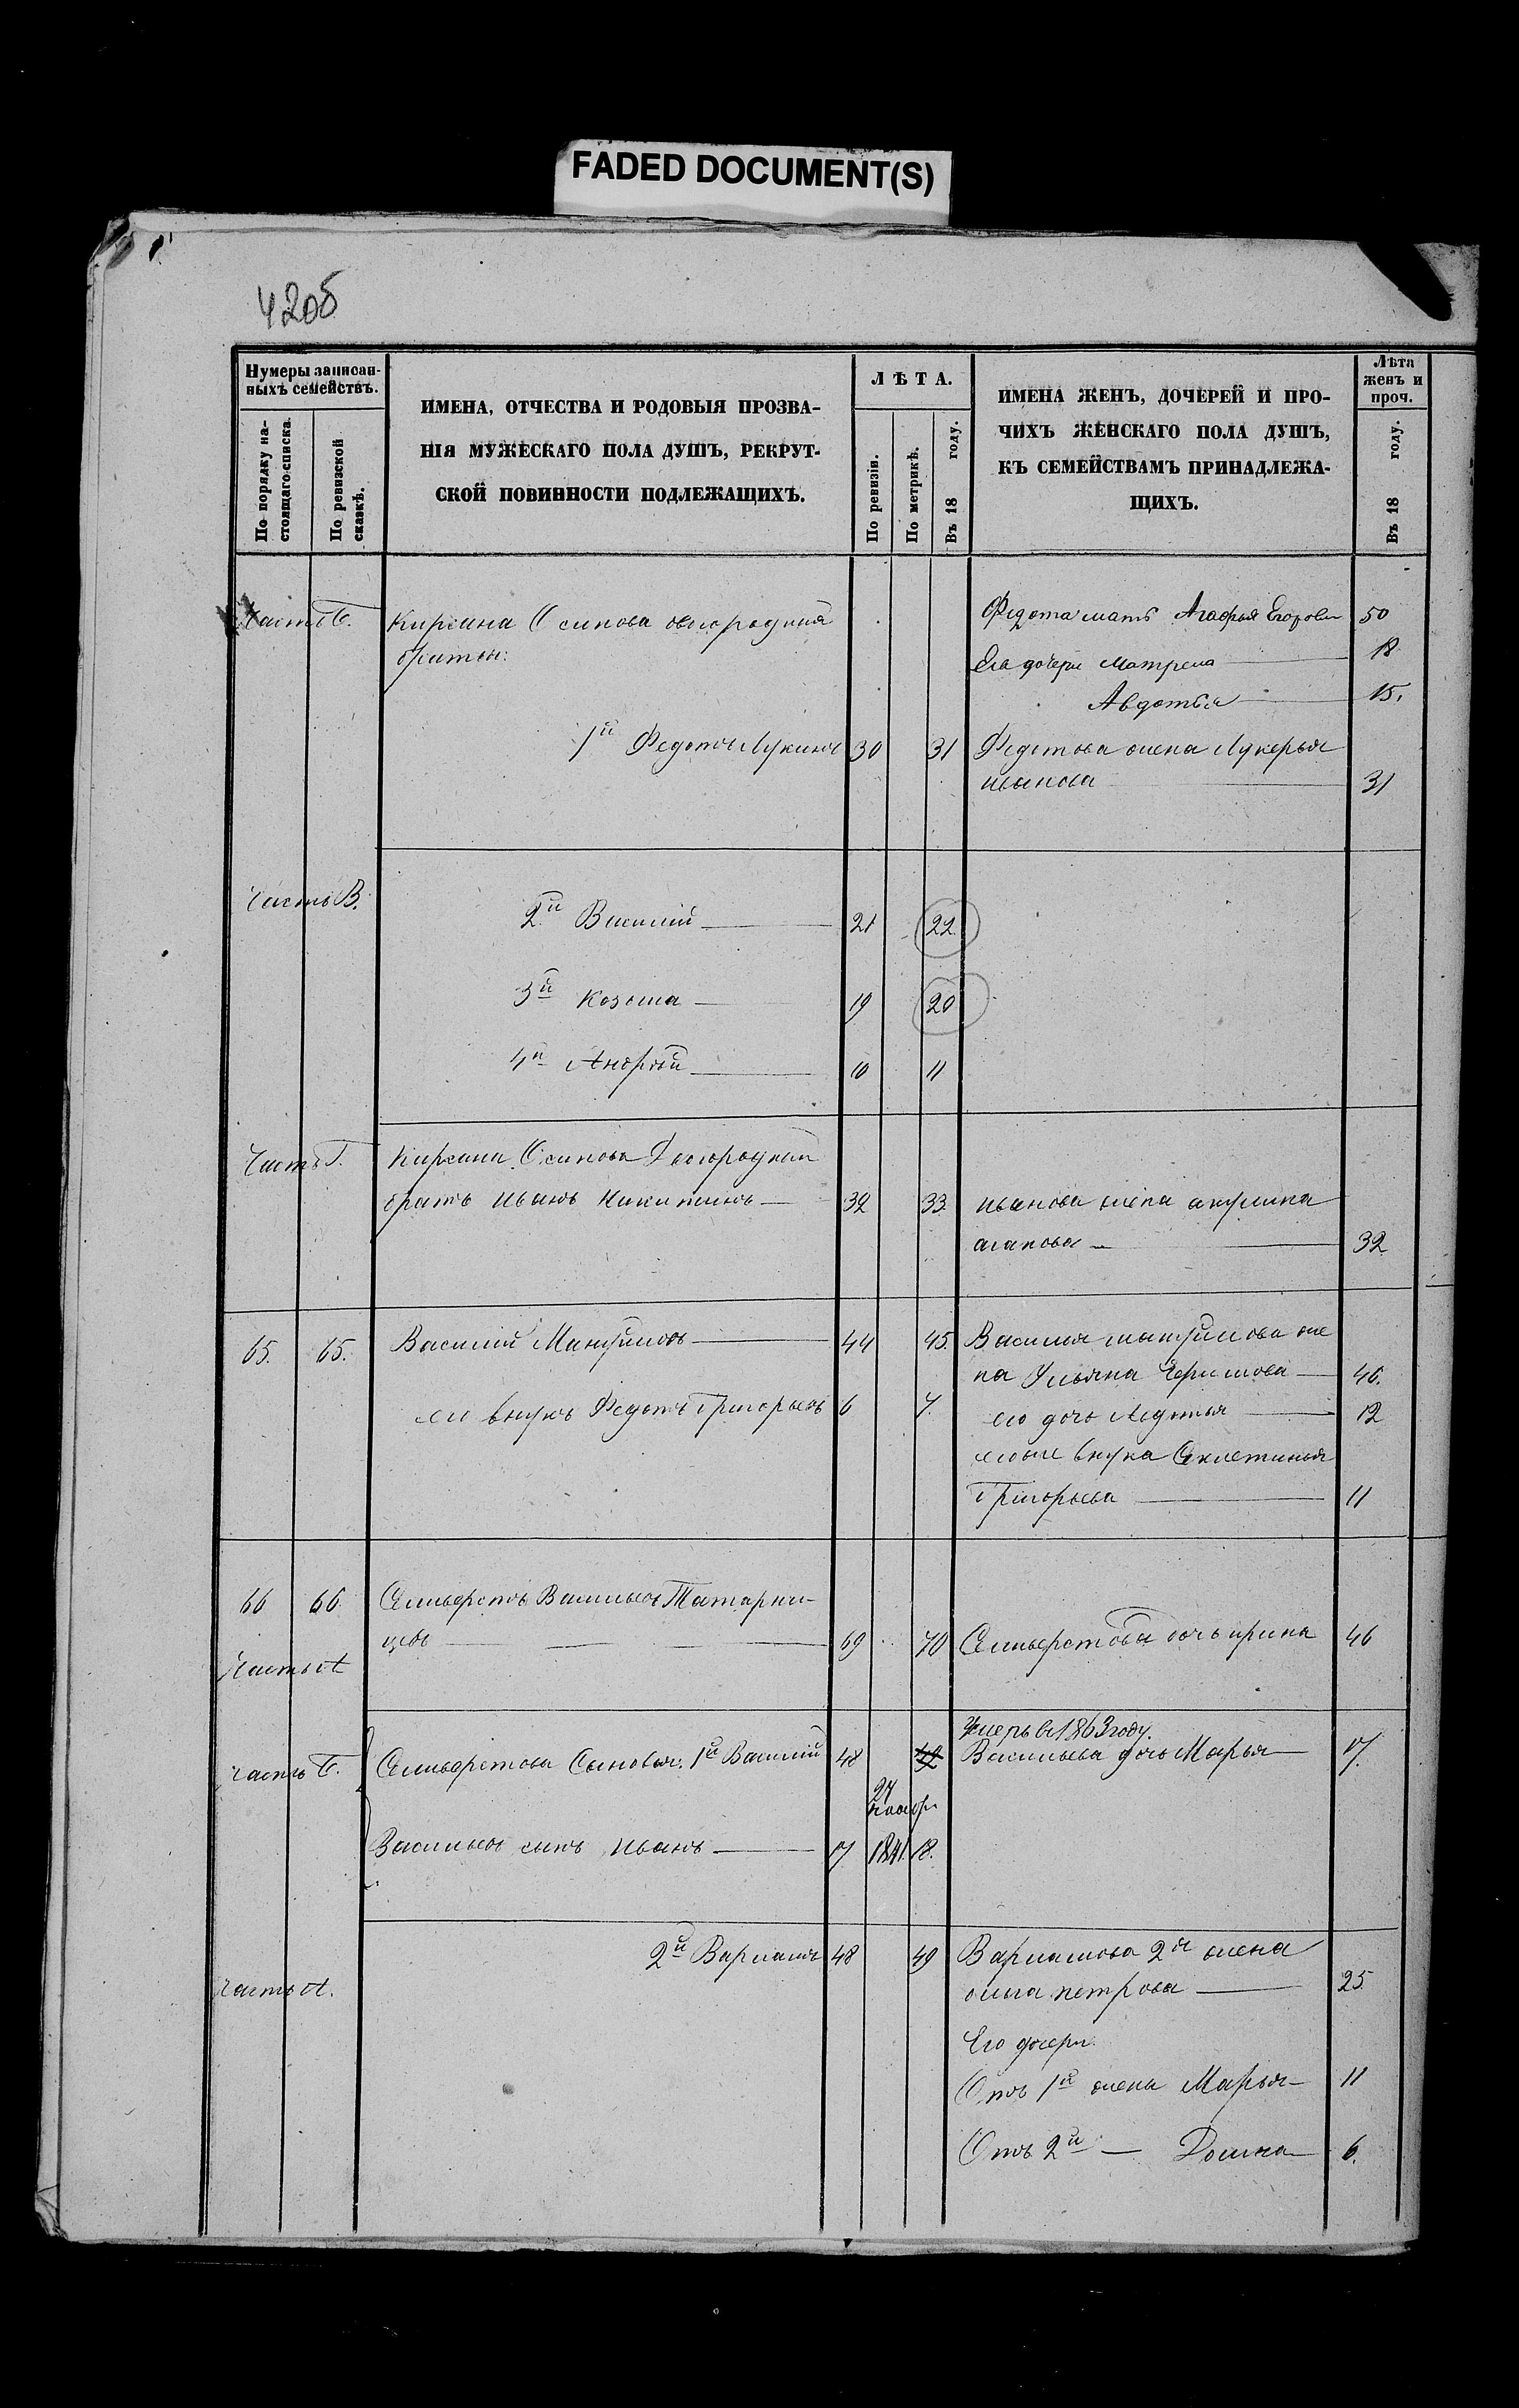 FADED DOCUMENT(S)
420б
Нумеры записан-
ныхъ семействъ.
По порядку на-
стоящаго списка.
По ревизской
сказкѣ.
ИМЕНА, ОТЧЕСТВА И РОДОВЫЯ ПРОЗВА-
НІЯ МУЖЕСКАГО ПОЛА ДУШЪ, РЕКРУТ-
СКОЙ ПОВИННОСТИ ПОДЛЕЖАЩИХЪ.
ЛѢТА.
По ревизіи.
По метрикѣ.
Въ 18 году.
ИМЕНА ЖЕНЪ, ДОЧЕРЕЙ И ПРО-
ЧИХЪ ЖЕНСКАГО ПОЛА ДУШЪ,
КЪ СЕМЕЙСТВАМЪ ПРИНАДЛЕЖА-
ЩИХЪ.
Лѣта
женъ и
проч.
Въ 18 году.
Часть Б. Кирсана Осипова двоюродныя Федота мать Агафья Егорова 50
братья: Его дочери Матрена 18
Авдотья 15.
1й Федотъ Лукинъ 30 31 Федотова жена Лукерья
Иванова 31
Часть В.
2й Василій 21 22
3й Козьма 19 20
4й Андрей 10 11
Часть Г. Кирсана Осипова Двоюродный
братъ Иванъ Никитинъ 32 33 Иванова жена Акулина
Агапова 32
65. 65. Василій Мануйловъ 44 45. Василія Мануйлова же
на Ульяна 46.
его внукъ Федотъ Григорьевъ 6 7. его дочь Авдотья 12
его же внука
Григорьева 11
66 66 Селиверстъ Васильевъ Татарни-
цевъ 69 70 Селиверстова дочь Ирина 46
Часть А
Умеръ въ 1863 году.
Часть Б. Селиверстова Сыновья: 1й Василій 48 Васильева дочь Марья 17.
27
ноябр
Васильевъ сынъ Иванъ 17 1841 18.
2й Варламъ 48 49 Варламова 2я жена
Часть А. Петрова 25
Его дочери
Отъ 1й жены Марья 11
Отъ 2й Домна 6.